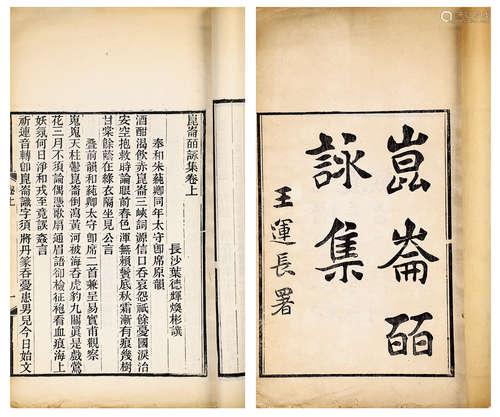 崑崙皕詠集
王運長署
崑崙皕詠集卷上
長沙葉德輝煥彬譔
奉和朱蒓卿同年太守卽席原韻
酒酣渴飲赤崑崙三峽詞源信口呑哀怨祇餘憂國淚治
安空抱救時論眼前春色渾無賴鬢底秋霜漸有痕幾樹
甘棠餘蔭在綠衣隔坐見公言
疊前韻和蒓卿太守卽席二首兼呈易實甫觀察
嵬嵬天柱鬱崑崙倒瀉黃河被海呑虎豹九關眞是戲鶯
花三月不須論偶憑歌扇通眉語卻檢征袍看血痕海上
妖氛何日淨和戎至竟誤奎言
祈連音轉卽崑崙識字須將丹篆呑憂患男兒今日始文
卷上